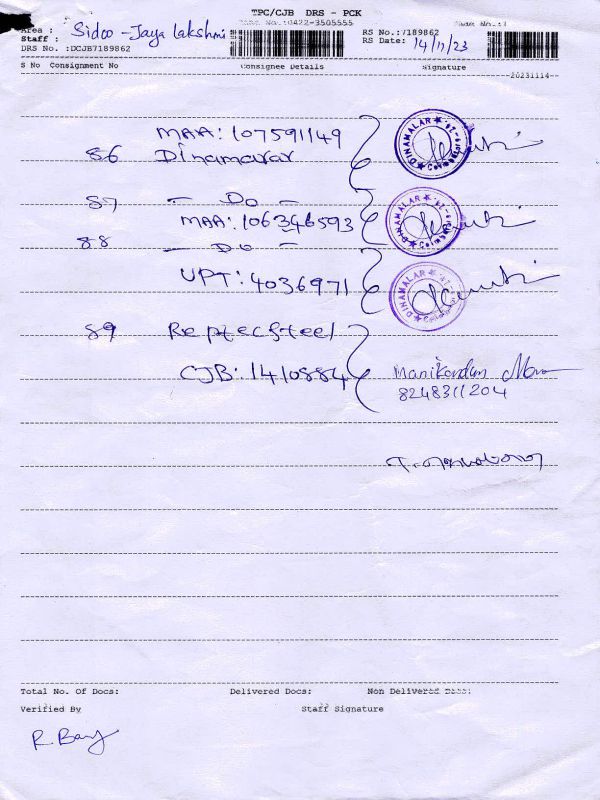 TPC/CJB DRS - PCK
Area : Sidco - Jaya Lakshmi
0422-3505555
Staff :
RS No.:7189862
DRS No. :DCJB7189862
RS Date: 14/11/23
S No Consignment No Consignee Details Signature
20231114
MAA: 107591149
86 Dinamalar
DINAMALAR
87 - Do -
MAA: 106346593
DINAMALAR
88 - Do -
UPT: 4036971
DINAMALAR
89
CJB: 1410884
Manikandan
8248311204
Total No. Of Docs: Delivered Docs: Non Delivered Docs:
Verified By Staff Signature